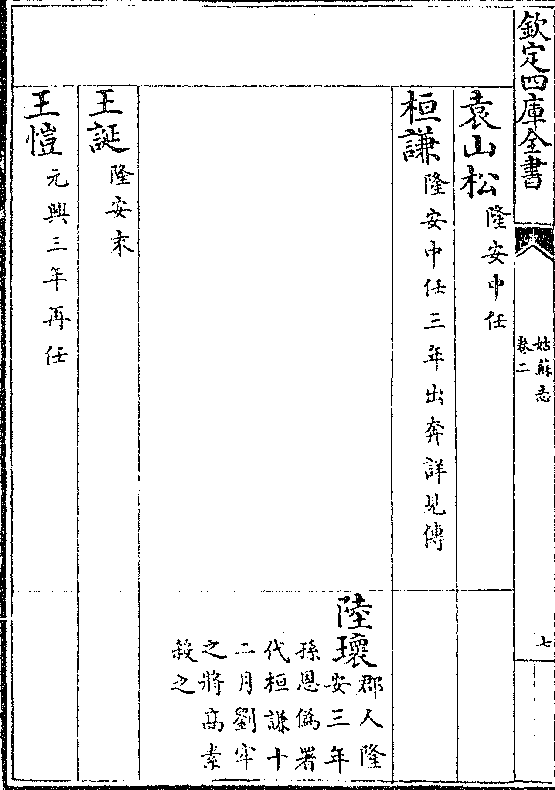 欽定四庫全書
姑蘇志
卷二
七
袁山松隆安中任
桓謙隆安中任三年出奔詳見傳
陸瓌郡人隆
安三年
孫恩偽署
代桓謙十
二月劉牢
之將高素
殺之
王誕隆安末
王愷元興三年再任